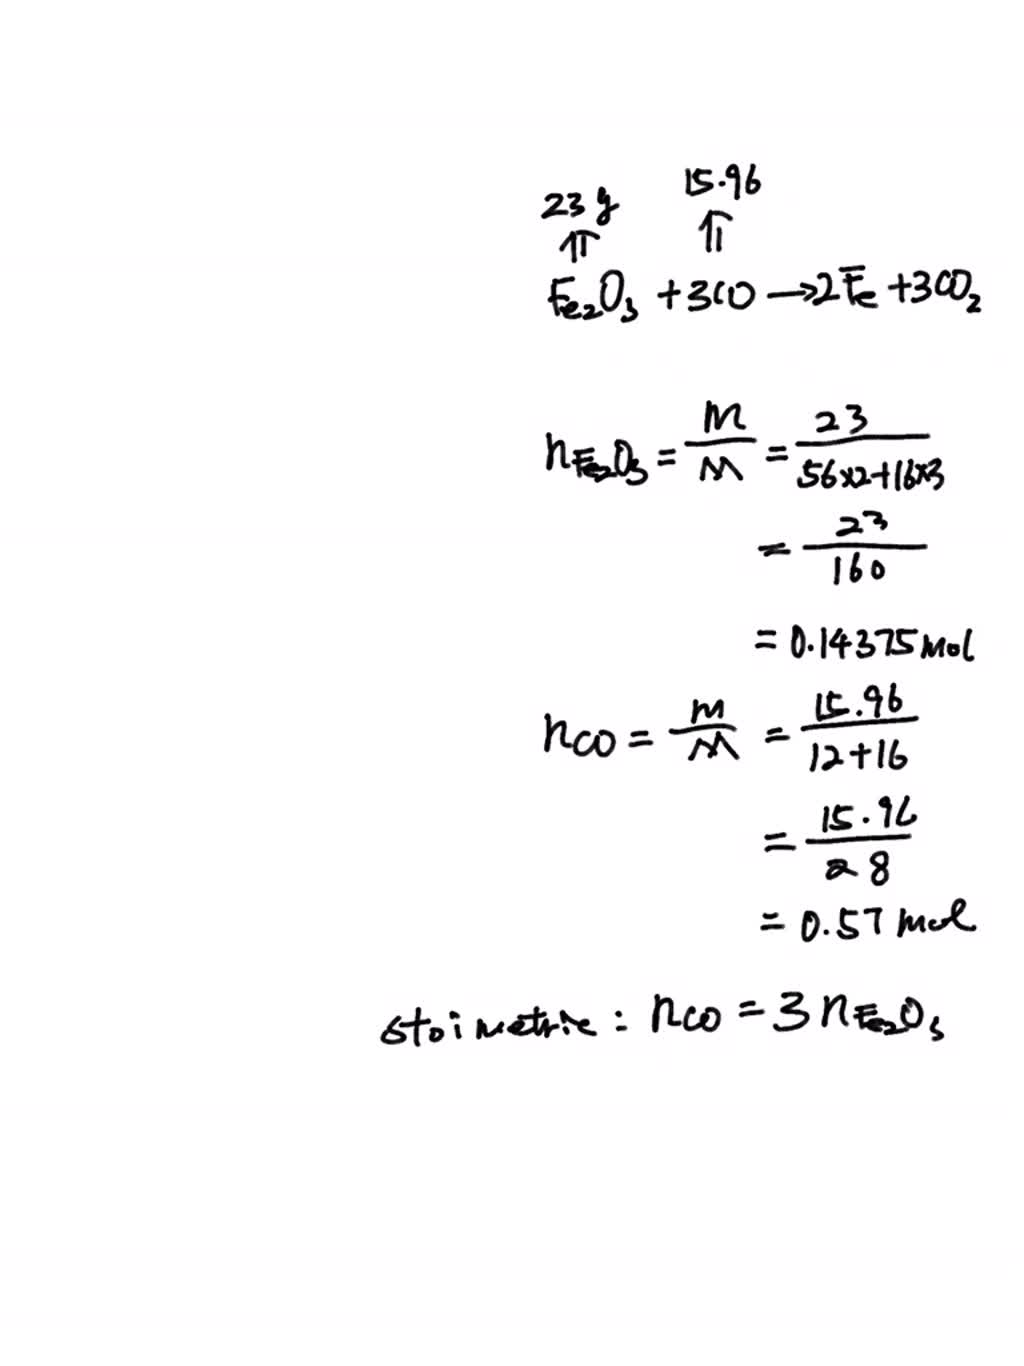 23 g 15.96
⇑ ⇑
Fe₂O₃ + 3CO → 2Fe + 3CO₂
nFe₂O₃ = m/M = 23/(56×2+16×3)
= 23/160
= 0.14375 mol
nCO = m/M = 15.96/(12+16)
= 15.96/28
= 0.57 mol
stoimetric : nCO = 3 nFe₂O₃